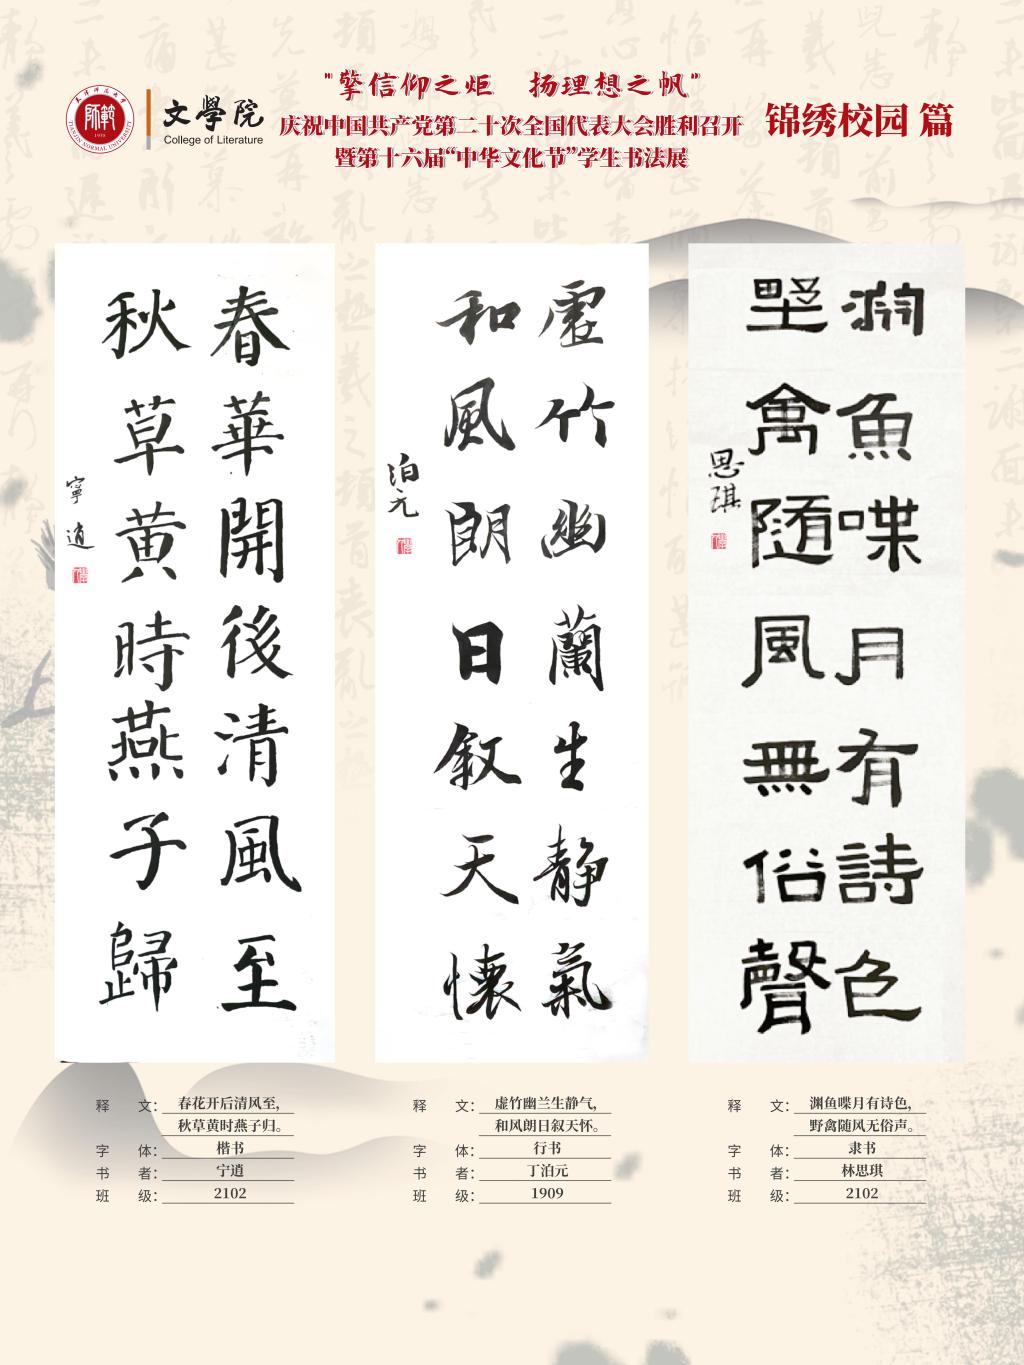 天津师范大学
師範
1958
TIANJIN NORMAL UNIVERSITY
文學院
College of Literature
"擎信仰之炬 扬理想之帆"
庆祝中国共产党第二十次全国代表大会胜利召开
暨第十六届“中华文化节”学生书法展
锦绣校园 篇
春華開後清風至
秋草黄時燕子歸
寧逍
虛竹幽蘭生静氣
和風朗日叙天懷
泊元
渊魚喋月有詩色
埜禽随風無俗聲
思琪
释 文：春花开后清风至，
秋草黄时燕子归。
字 体：楷书
书 者：宁逍
班 级：2102
释 文：虚竹幽兰生静气，
和风朗日叙天怀。
字 体：行书
书 者：丁泊元
班 级：1909
释 文：渊鱼喋月有诗色，
野禽随风无俗声。
字 体：隶书
书 者：林思琪
班 级：2102